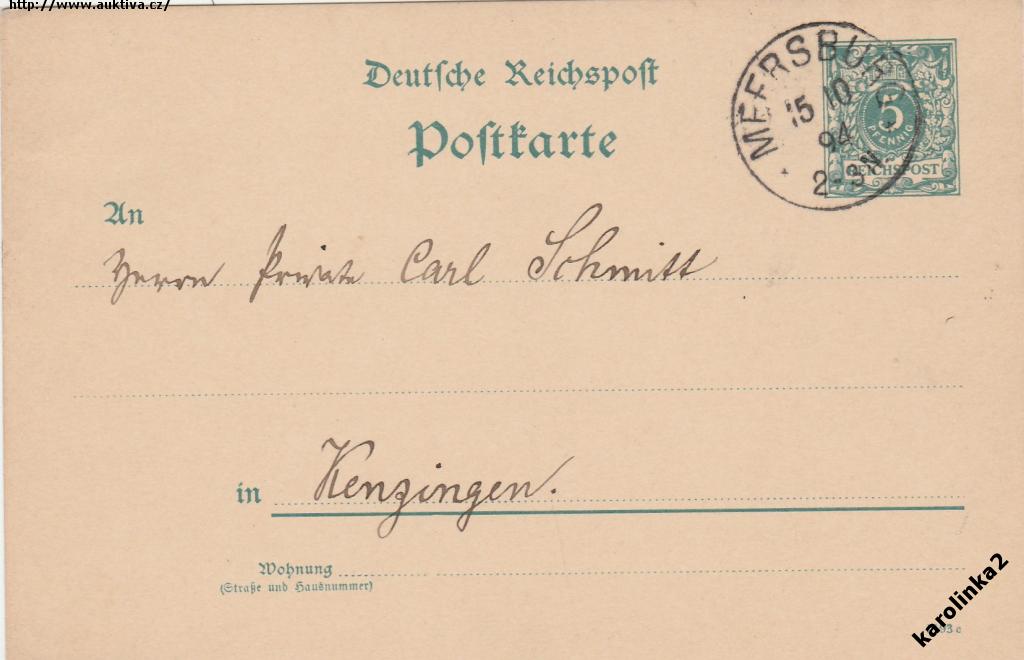 http://www.auktiva.cz/
Deutsche Reichspost
Postkarte
MEERSBURG
15 10
94
2-3N.
5
PFENNIG
REICHSPOST
An
Herrn Private Carl Schmitt
in Kenzingen.
Wohnung
(Straße und Hausnummer)
93 c
karolinka2